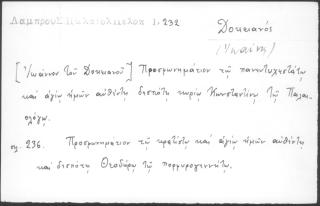 Λάμπρου, Παλαιολόγεια 1, 232
Δοκειανός
(Ἰωάννης)
[Ἰωάννου τοῦ Δοκειανοῦ] Προσφωνημάτιον τῷ πανευτυχεστάτῳ
καὶ ἁγίῳ ἡμῶν αὐθέντῃ δεσπότῃ κυρίῳ Κωνσταντίνῳ τῷ Παλαι-
ολόγῳ.
σ. 236. Προσφωνημάτιον τῷ κρατίστῳ καὶ ἁγίῳ ἡμῶν αὐθέντῃ
καὶ δεσπότῃ Θεοδώρῳ τῷ πορφυρογεννήτῳ.